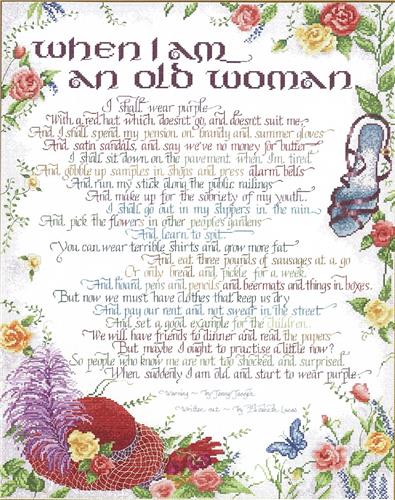 When I am
an old woman
I shall wear purple
With a red hat which doesn't go, and doesn't suit me,
And I shall spend my pension on brandy and summer gloves
And satin sandals, and say we've no money for butter.
I shall sit down on the pavement when I'm tired
And gobble up samples in shops and press alarm bells
And run my stick along the public railings
And make up for the sobriety of my youth.
I shall go out in my slippers in the rain
And pick the flowers in other people's gardens
And learn to spit.
You can wear terrible shirts and grow more fat
And eat three pounds of sausages at a go
Or only bread and pickle for a week
And hoard pens and pencils and beermats and things in boxes.
But now we must have clothes that keep us dry
And pay our rent and not swear in the street
And set a good example for the children.
We will have friends to dinner and read the papers
But maybe I ought to practise a little now?
So people who know me are not too shocked and surprised
When suddenly I am old and start to wear purple.
Warning ~ by Jenny Joseph
Written out ~ by Elizabeth Lucas